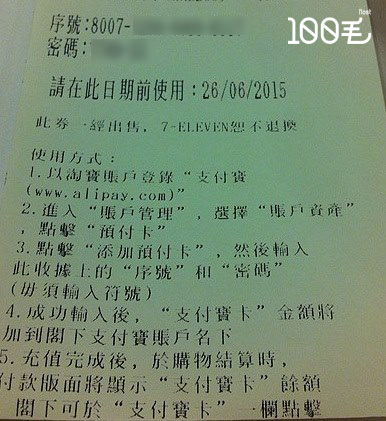 100毛
float
序號:8007-
密碼:
請在此日期前使用:26/06/2015
此券一經出售，7-ELEVEN恕不退換
使用方式：
1.以淘寶賬戶登錄“支付寶
(www.alipay.com)”
2.進入“賬戶管理”，選擇“賬戶資產”
，點擊“預付卡”
3.點擊“添加預付卡”，然後輸入
此收據上的“序號”和“密碼”
(毋須輸入符號)
4.成功輸入後，“支付寶卡”金額將
加到閣下支付寶賬戶名下
5.充值完成後，於購物結算時，
付款版面將顯示“支付寶卡”餘額
閣下可於“支付寶卡”一欄點擊